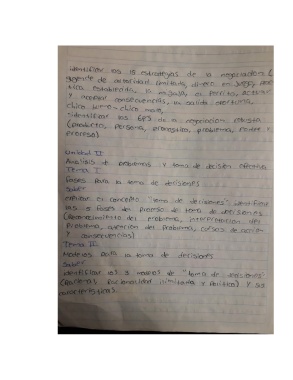 identificar las 15 estrategias de la negociación (
agente de autoridad limitada, dinero en juego,
tira establecida, la migaja, el perrito, actuar
y aceptar consecuencias, la salida
chico bueno - chico malo,
- identificar las 6P'S de la negociación
(producto, persona, pronostico, problema,
proceso)
Unidad II
Analisis de problemas y toma de decisión
Tema I
Bases para la toma de decisiones
Saber
explicar el concepto "toma de decisiones" identificar
las 5 fases del proceso de toma de decisiones
(Reconocimiento del problema, interpretación del
Problema, atención del problema, cursos de acción
y consecuencias)
Tema II
Modelos para la toma de decisiones
Saber
identificar los 3 modelos de "toma de decisiones"
(Racional, Racionalidad limitada y político) y sus
características.